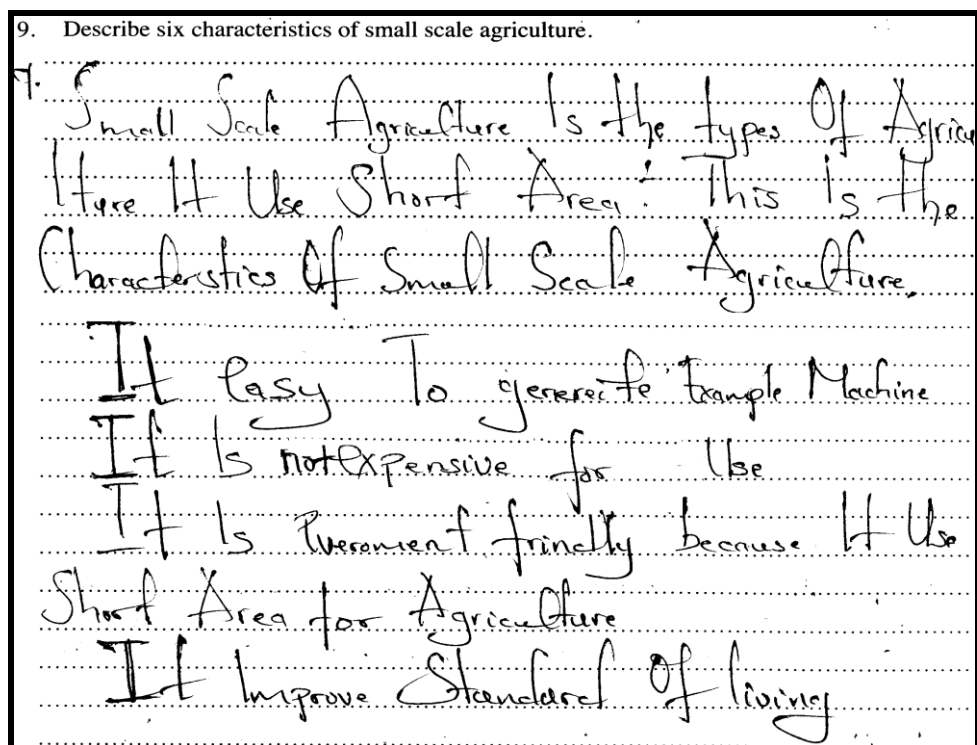 9. Describe six characteristics of small scale agriculture.
9. Small Scale Agriculture Is the types Of Agricu
lture It Use Short Area. This Is the
Characterstics Of Small Scale Agriculture.
It easy To genereite Example Machine
It Is not expensive for Use
It Is Everoment frindlly because It Use
Short Area for Agriculture
It Improve Standard Of living